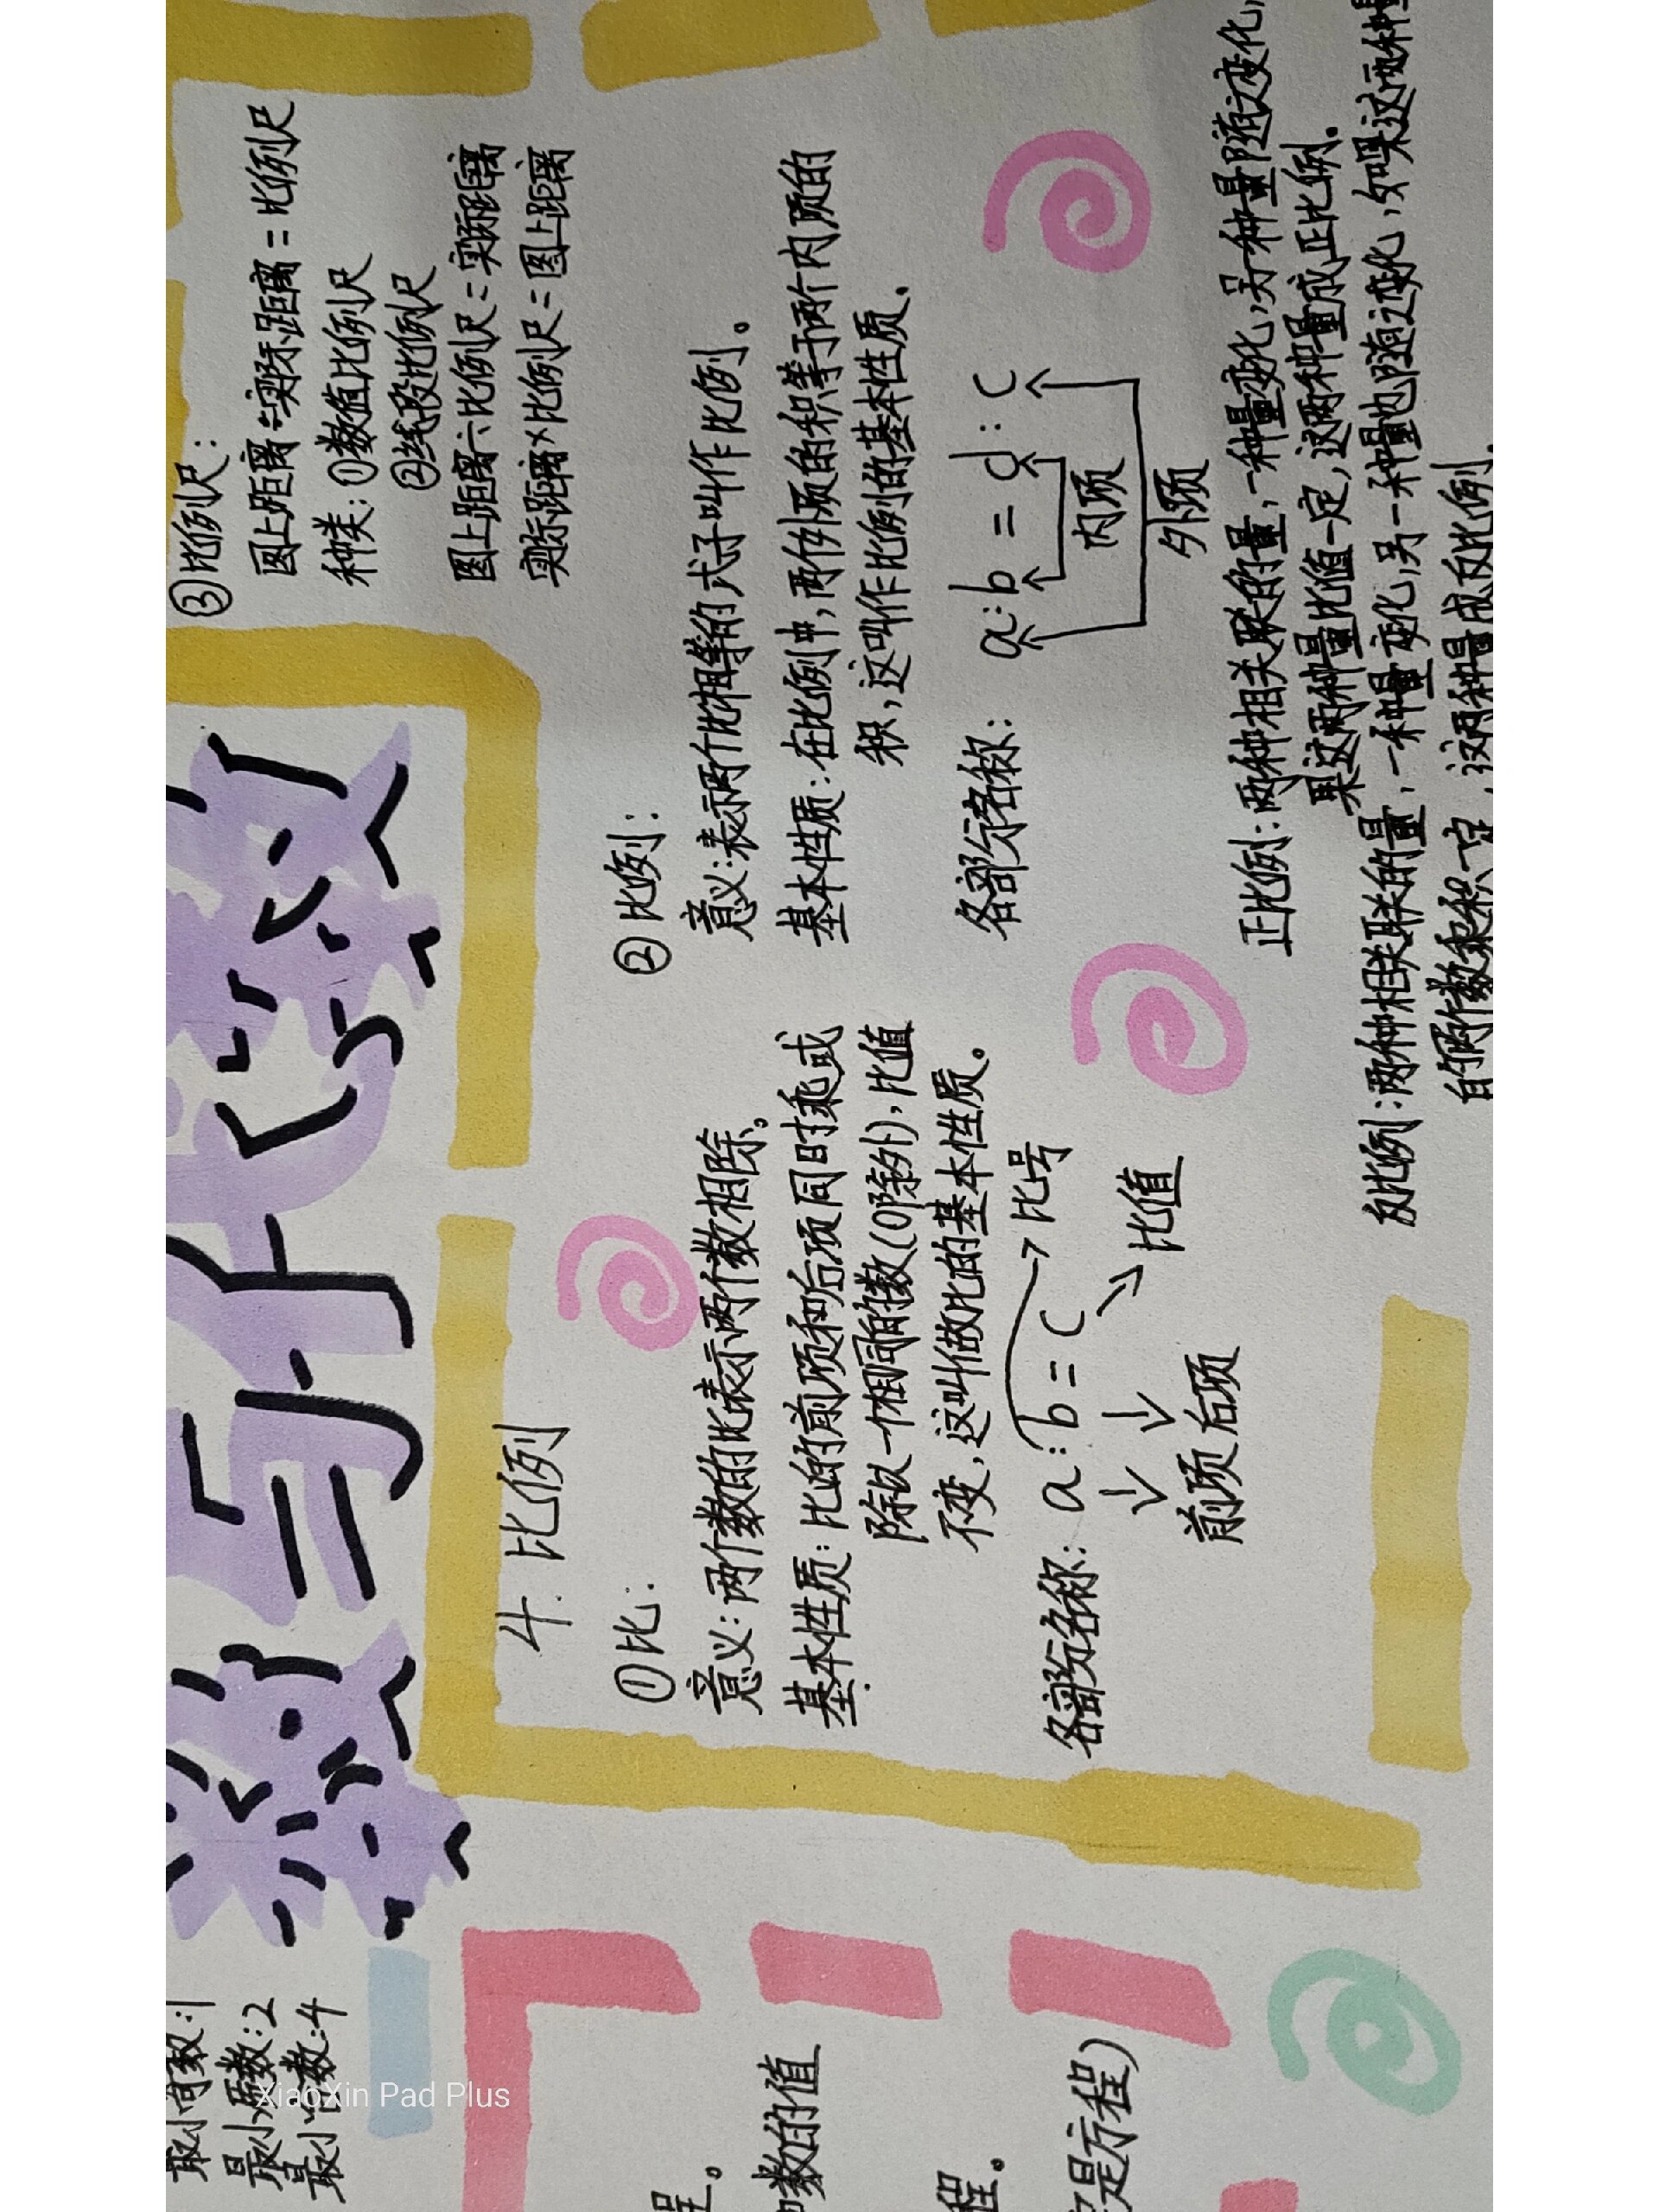 4. 比例
①比:
意义:两个数的比表示两个数相除。
基本性质:比的前项和后项同时乘或
除以一个相同的数(0除外),比值
不变,这叫做比的基本性质。
各部分名称: a:b=c
比号
比值
前项 后项
②比例:
意义:表示两个比相等的式子叫作比例。
基本性质:在比例中,两个外项的积等于两个内项的
积,这叫作比例的基本性质。
各部分名称: a:b=d:c
内项
外项
正比例:两种相关联的量,一种量变化,另一种量随之变化,
果这两种量比值一定,这两种量成正比例.
反比例:两种相关联的量,一种量变化,另一种量也随之变化,如果这两种量
的两个数乘积一定,这两种量成反比例.
③比例尺:
图上距离÷实际距离=比例尺
种类:①数值比例尺
②线段比例尺
图上距离÷比例尺=实际距离
实际距离×比例尺=图上距离
最小 数:1
最小质数:2
最小合数:4
数的值
程。
程。
是方程)
XiaoXin Pad Plus